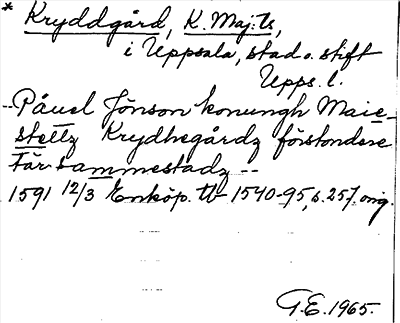 * Kryddgård, K. Maj:ts,
i Uppsala, stad o. stift
Upps. l.
--Påuel Jönson konungh Maie-
stettz Krydhegårdz förstondere
Får sammestadz --
1591 12/3 Enköp. Tb 1540-95, s. 257. orig.
G.E. 1965.